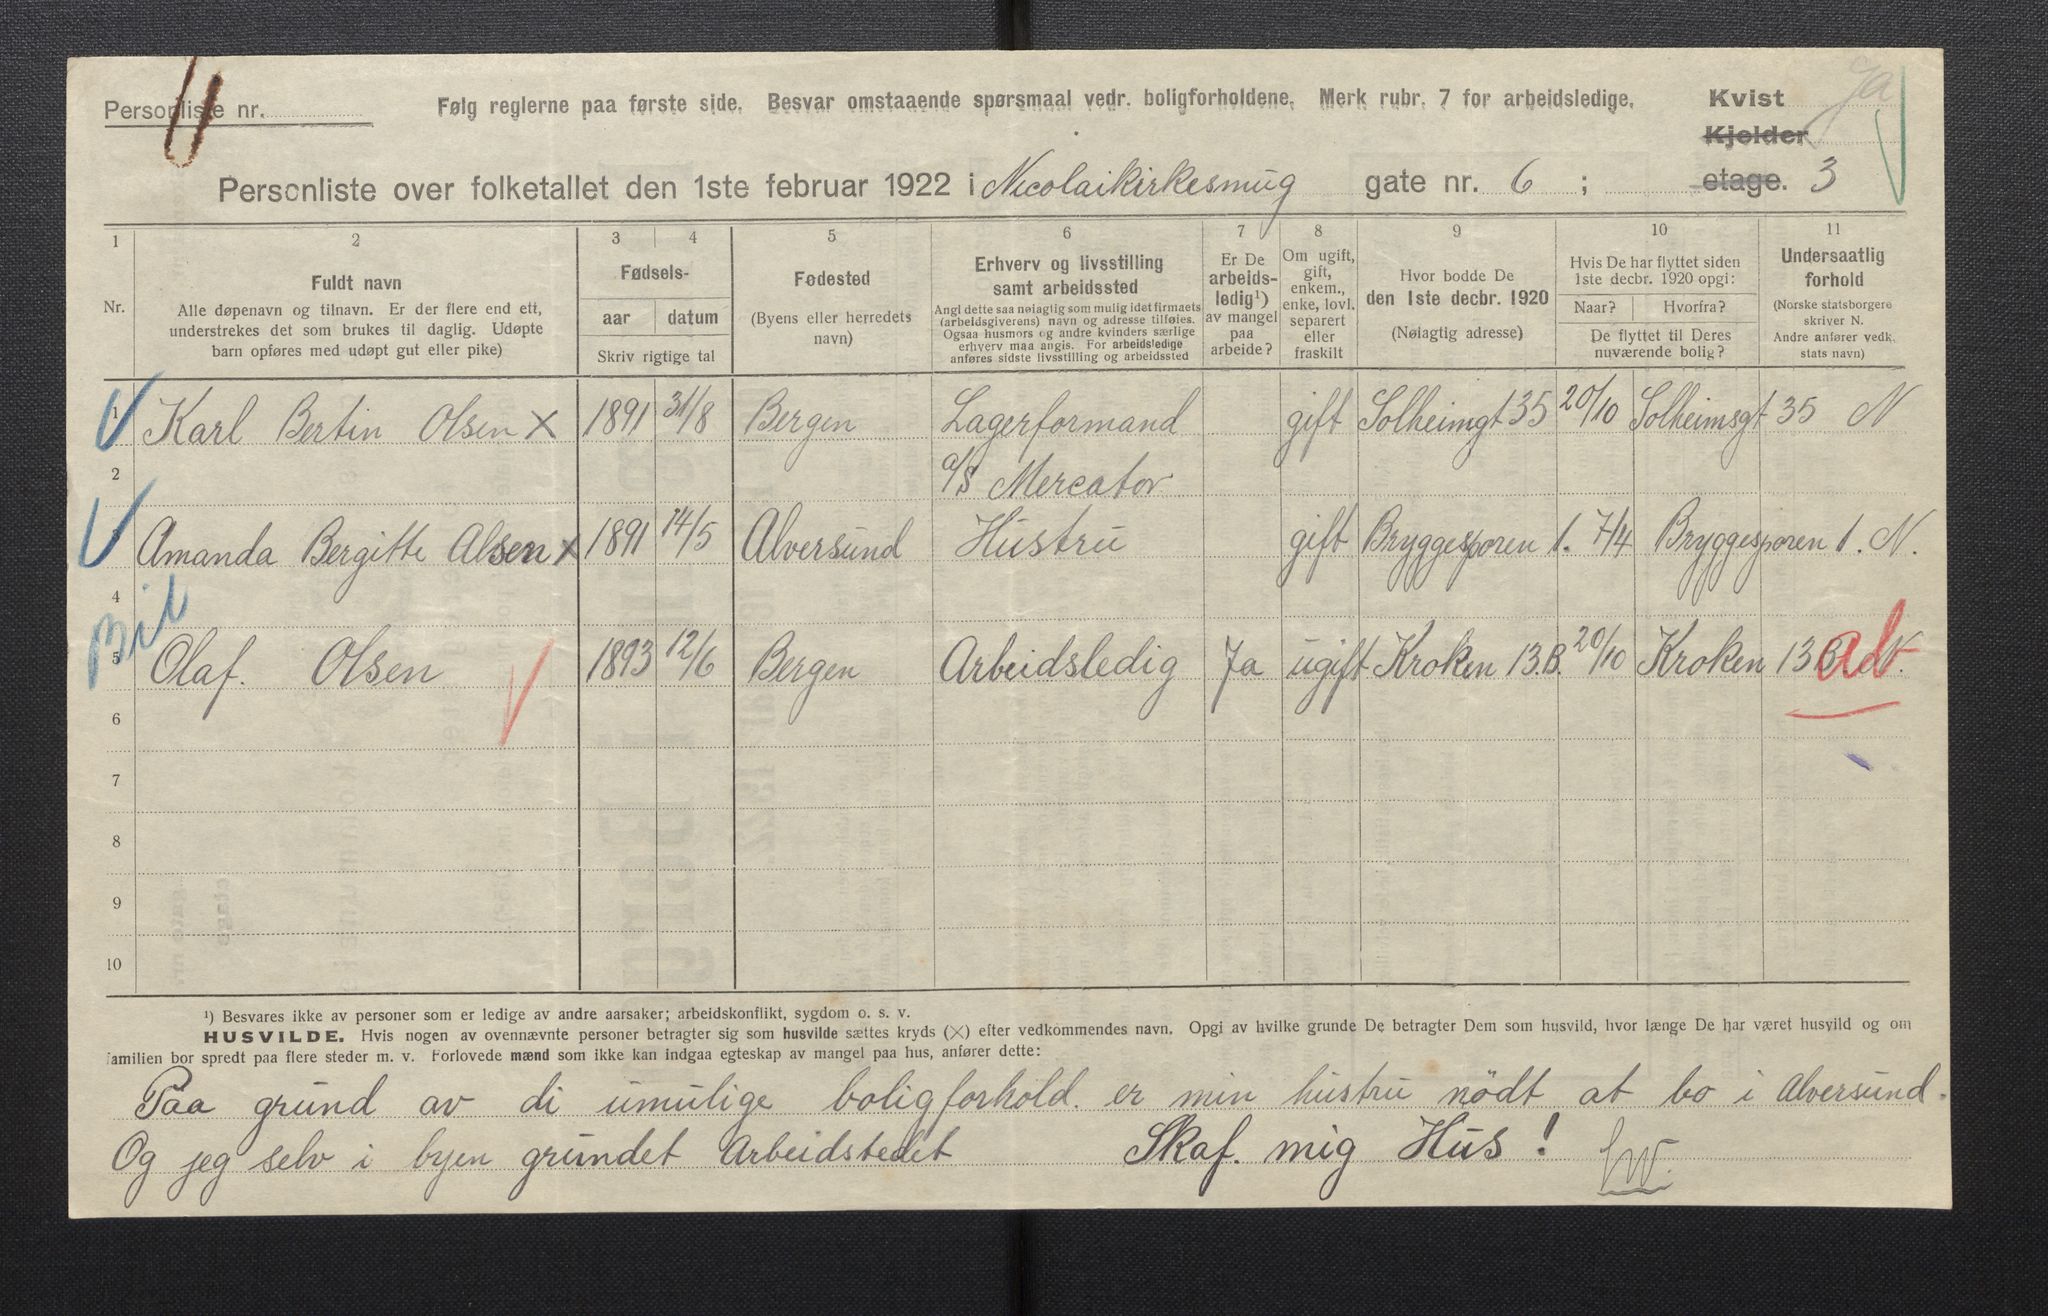 Personliste nr.
Følg reglerne paa første side. Besvar omstaaende spørsmaal vedr. boligforholdene. Merk rubr. 7 for arbeidsledige.
Kvist Ja
Kjelder
Personliste over folketallet den 1ste februar 1922 i Nicolaikirkesmug gate nr. 6 ; etage. 3
1 2 3 4 5 6 7 8 9 10 11
Nr.
Fuldt navn
Alle døpenavn og tilnavn. Er der flere end ett,
understrekes det som brukes til daglig. Udøpte
barn opføres med udøpt gut eller pike)
Fødsels-
aar datum
Skriv rigtige tal
Fødested
(Byens eller herredets
navn)
Erhverv og livsstilling
samt arbeidssted
Angi dette saa nøiaglig som mulig idet firmaets
(arbeidsgiverens) navn og adresse tilføies.
Ogsaa husmors og andre kvinders særlige
erhverv maa angis. For arbeidsledige
anføres sidste livsstilling og arbeidssted
Er De
arbeids-
ledig¹)
av mangel
paa
arbeide?
Om ugift,
gift,
enkem.,
enke, lovl.
separert
eller
fraskilt
Hvor bodde De
den 1ste decbr. 1920
(Nøiagtig adresse)
Hvis De har flyttet siden
1ste decbr. 1920 opgi:
Naar? Hvorfra?
De flyttet til Deres
nuværende bolig?
Undersaatlig
forhold
(Norske statsborgere
skriver N.
Andre anfører vedk.
stats navn)
1 Karl Bertin Olsen X 1891 31/8 Bergen Lagerformand gift Solheimgt 35 20/10 Solheimsgt 35 N
2 a/s Mercator
3 Amanda Bergitte Olsen x 1891 14/5 Alversund Hustru gift Bryggesporen 1. 7/4 Bryggesporen 1. N.
4
5 Olaf. Olsen 1893 12/6 Bergen Arbeidsledig Ja ugift Kroken 13.B. 20/10 Kroken 13 B. N.
6
7
8
9
10
¹) Besvares ikke av personer som er ledige av andre aarsaker; arbeidskonflikt, sygdom o. s. v.
HUSVILDE. Hvis nogen av ovennævnte personer betragter sig som husvilde sættes kryds (X) efter vedkommendes navn. Opgi av hvilke grunde De betragter Dem som husvild, hvor længe De har været husvild og om
familien bor spredt paa flere steder m. v. Forlovede mænd som ikke kan indgaa egteskap av mangel paa hus, anfører dette:
Paa grund av di umulige boligforhold. er min hustru nödt at bo i Alversund.
Og jeg selv i byen grundet Arbeidstedet Skaf. mig Hus!